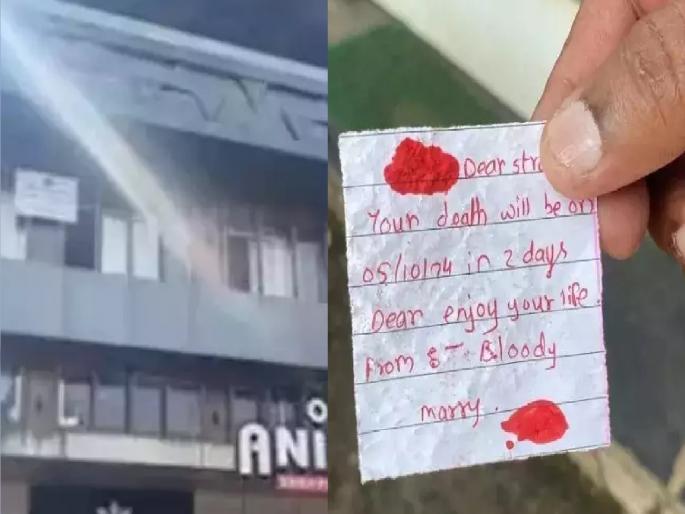 Dear str
Your death will be on
05/10/24 in 2 days
Dear enjoy your life.
from :- Bloody
marry.
ANi